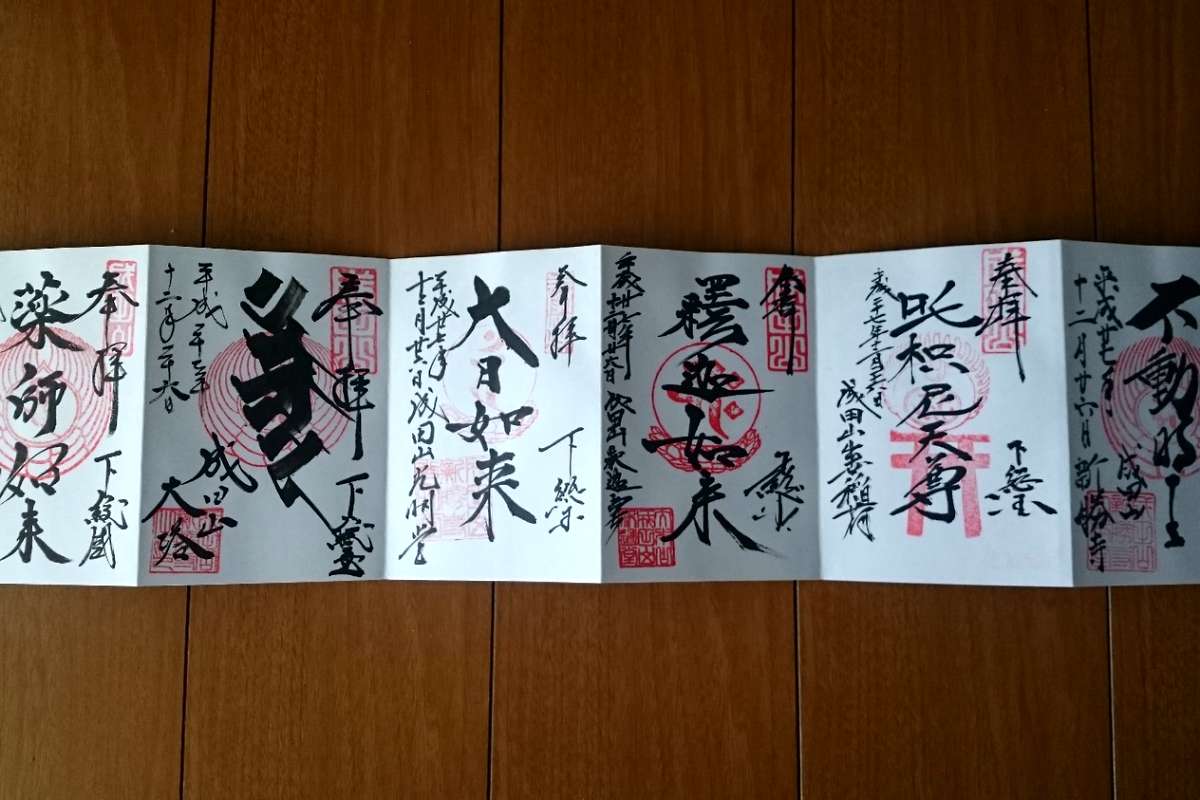 不動明王
平成廿七年
十二月廿六日
成田山
新勝寺
奉拝
下総国
吒枳尼天尊
平成二十七年十二月廿六日
成田山出世稲荷
奉拝
釋迦如来
平成廿七年
十二月廿六日
成田山
奉拝
下総国
大日如来
平成廿七年
十二月廿六日
成田山光明堂
奉拝
下総国
平成二十七年
十二月二十六日
成田山
大塔
奉拝
下総国
薬師如来